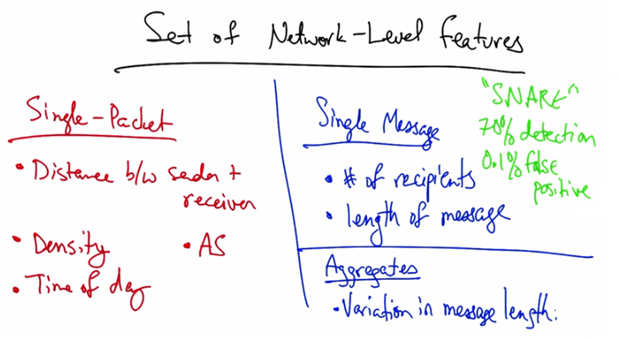 Set of Network-Level Features
Single-Packet
• Distance b/w sender +
receiver
• Density • AS
• Time of day
Single Message
• # of recipients
• length of message
"SNARE"
70% detection
0.1% false
positive
Aggregates
• Variation in message length.